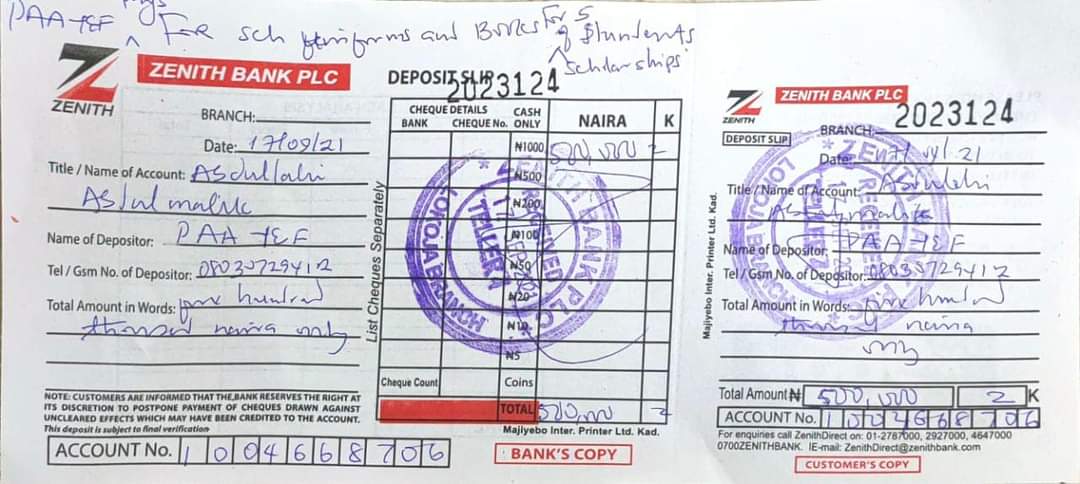 PAA-TEF
For sch uniforms and Books for 5
of Stundents
scholarships
ZENITH
ZENITH BANK PLC
BRANCH:
Date: 17/09/21
Title / Name of Account: Asdullahi
Asdulmalik
Name of Depositor: PAA TEF
Tel / Gsm No. of Depositor: 08030729412
Total Amount in Words: five hundred
thousand naira only
NOTE: CUSTOMERS ARE INFORMED THAT THE BANK RESERVES THE RIGHT AT
ITS DISCRETION TO POSTPONE PAYMENT OF CHEQUES DRAWN AGAINST
UNCLEARED EFFECTS WHICH MAY HAVE BEEN CREDITED TO THE ACCOUNT.
This deposit is subject to final verification
ACCOUNT No. 1004668706
DEPOSIT SLIP
2023124
List Cheques Separately
CHEQUE DETAILS CASH ONLY NAIRA K
BANK CHEQUE No.
₦1000 500,000 =
₦500
₦200
₦100
₦50
₦20
₦10
₦5
Cheque Count Coins
TOTAL 500,000 =
Majiyebo Inter. Printer Ltd. Kad.
BANK'S COPY
ZENITH BANK PLC
RECEIVED
TELLER A
LOKOJA BRANCH
Majiyebo Inter. Printer Ltd. Kad.
ZENITH
ZENITH BANK PLC
2023124
DEPOSIT SLIP
BRANCH:
Date:
Title / Name of Account:
Name of Depositor: PAA TEF
Tel / Gsm No. of Depositor: 08030729412
Total Amount in Words: five hundred
thousand naira
only
Total Amount ₦ 500,000 = K
ACCOUNT No. 1004668706
For enquiries call ZenithDirect on: 01-2787000, 2927000, 4647000
0700ZENITHBANK. IE-mail: ZenithDirect@zenithbank.com
CUSTOMER'S COPY
ZENITH BANK PLC
LOKOJA BRANCH